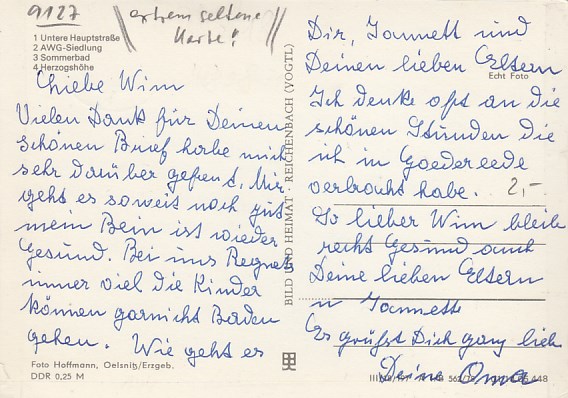 9127
extrem seltene
Karte!
1 Untere Hauptstraße
2 AWG-Siedlung
3 Sommerbad
4 Herzogshöhe
Liebe Wim
Vielen Dank für Deinen
schönen Brief habe mich
sehr darüber gefreut. Mir
geht es soweit noch gut
mein Bein ist wieder
Gesund. Bei uns Regnets
immer viel die Kinder
können garnicht Baden
gehen. Wie geht es
Foto Hoffmann, Oelsnitz/Erzgeb.
DDR 0,25 M
BILD UND HEIMAT · REICHENBACH (VOGTL)
Dir, Jannett und
Deinen lieben Eltern
Echt Foto
Ich denke oft an die
schönen Stunden die
ich in Goedereede
verbracht habe. 2,-
So lieber Wim bleibe
recht Gesund auch
Deine lieben Eltern
u Jannette
Es grüßst Dich ganz lieb
Deine Oma
448